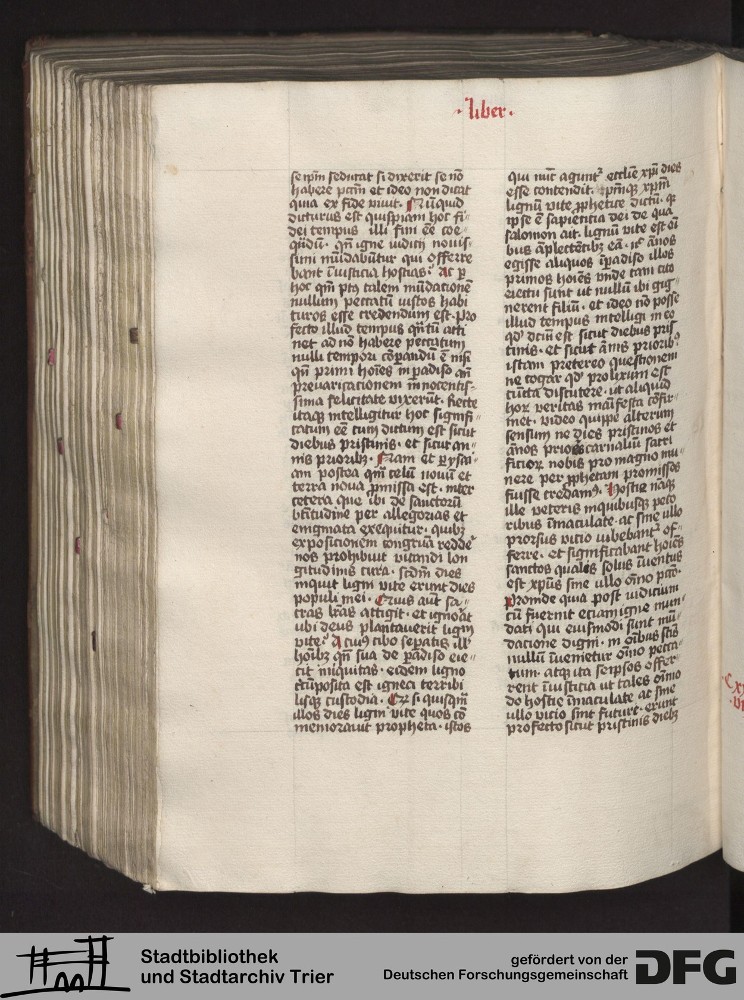 ·liber·
se ipm̄ seducat si dixerit se nō
habere pctm̄ et ideo non dicat
quia ex fide viuit. Nūquid
dicturus est quispiam hoc fi-
dei tempus illi fini eē coe-
q̄ndū. qn̄ igne iudicij nouis-
simi mūdabūtur qui offerre
bant ī iusticia hostias? At p̱
hoc qm̄ ptꝫ talem mūdationē
nullum peccatū iustos habi
turos esse credendum est. pro
fecto illud tempus qn̄tū atti
net ad nō habere peccatum
nulli tempori cōparandū ē nisi
qn̄ primi hoīes in padiso an̄
preuaricationem innocentis-
sima felicitate vixerūt. Recte
itaqꝫ intelligitur hoc signifi-
catum eē cum dictum est sicut
diebus pristinis. et sicut an-
nis prioribꝫ. Nam et p̱ ysai-
am postea qm̄ celū nouū et
terra noua p̄missa est. inter
cetera que ibi de sanctorū
btītudine per allegorias et
enigmata exequitur. quibꝫ
expositionem congruā redde
nos prohibuit vitandi lon
gitudinis cura. scdm̄ dies
inquit ligni vite erunt dies
populi mei. Quis aut̄ sa-
cras lr̄as attigit. et ignorat
ubi deus plantauerit lignū
vite? A cuiꝰ cibo sepatis ill'
hoībꝫ qn̄ sua de padiso eie-
cit iniquitas. eidem ligno
circūposita est ignea terribi
lisqꝫ custodia. Qꝫ si quisqm̄
illos dies ligni vite quos cō
memorauit propheta. istos
qui nūc agunt' ecclīe xp̄i dies
esse contendit. ipm̄qꝫ xp̄m
lignū vite prophetice dictū. qꝫ
ipse ē sapientia dei de qua
salomon ait. lignū vite est oī
bus āplectētibꝫ eā. nec ānos
egisse aliquos ī padiso illos
primos hoīes unde tam cito
eiecti sunt ut nullū ibi gig-
nerent filiū. et ideo nō posse
illud tempus intelligi in eo
qd' dc̄m est sicut diebus pris
tinis. et sicut ānis prioribꝫ.
istam pretereo questionem
ne cogar qd' prolixum est
cūcta discutere. ut aliquid
hoꝝ veritas manifesta cōfir-
met. video quippe alterum
sensum ne dies pristinos et
ānos priores carnaliū sacri
ficioꝝ nobis pro magno mu-
nere per pphetam promissos
fuisse credamꝰ. Hostie naqꝫ
ille veteris in quibusqꝫ peco
ribus īmaculate. ac sine ullo
prorsus vicio iubebant' of-
ferre. et significabant hoīes
sanctos qualis solus īuentus
est xp̄us sine ullo oīno pctō.
Proinde quia post iudicium
cū fuerint eciam igne mun-
dati qui eiusmodi sunt mū-
datione digni. in om̄ibus sc̄is
nullū īuenietur oīno pecca-
tum. atqꝫ ita seipsos offer-
rent ī iusticia ut tales oīno
do hostie īmaculate ac sine
ullo vicio sint future. erunt
profecto sicut pristinis diebꝫ
Stadtbibliothek
und Stadtarchiv Trier
gefördert von der
Deutschen Forschungsgemeinschaft
DFG